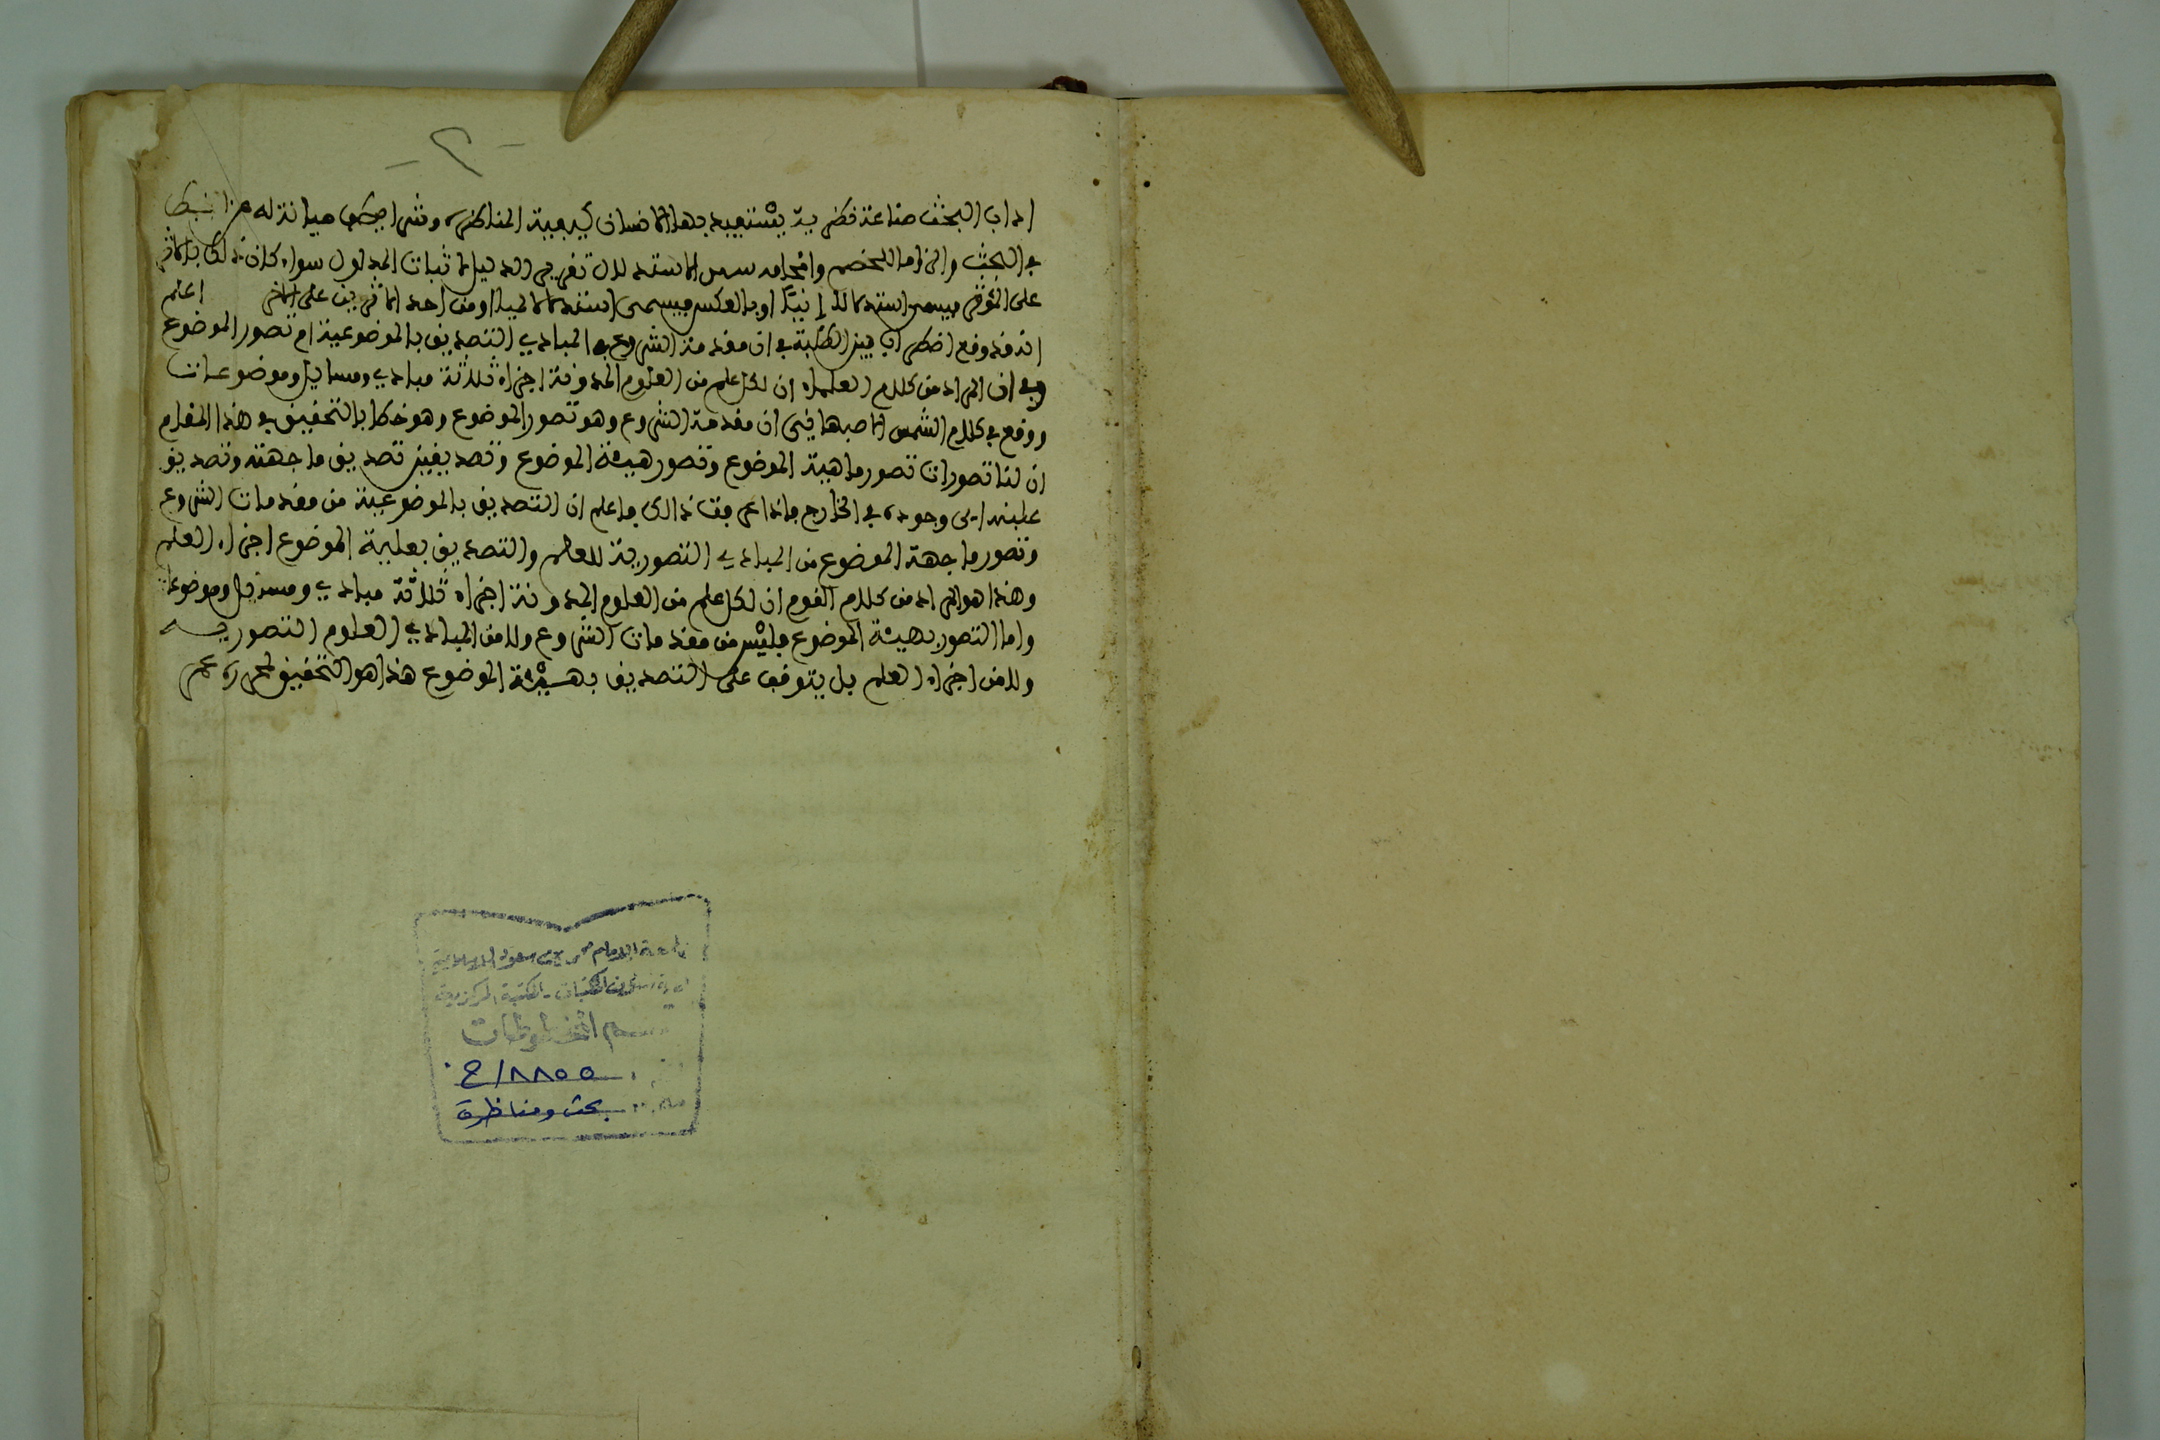 اداب البحث صناعة نظرية يستفيد بها الانسان كيفية المناظرة وشرايطها صيانة له عن الخبط
في البحث والزاما للخصم وافحامه الاستدلال تقرير الدليل لاثبات المدلول سواء كان ذلك بالاثر
على المؤثر فيسمى استدلالا إنيا او بالعكس فيسمى استدلالا لميا او من احد الاثرين على الاخر اعلم
انه قد وقع اضطراب بين الطلبة في ان مقدمة الشروع في المبادي التصديق بالموضوعية ام تصور الموضوع
وفي ان المراد من كلام العلماء ان لكل علم من العلوم المدونة اجزاء ثلاثة مبادي ومسايل وموضوعات
ووقع في كلام الشمس الاصبهاني ان مقدمة الشروع وهو تصور الموضوع وهو خطا بالتحقيق في هذا المقام
ان لنا تصورات تصور ماهية الموضوع وتصور هيئة الموضوع وتصديقين تصديق ما جهته وتصديق
اي وجوده في الخارج فاذا عرفت ذالك فاعلم ان التصديق بالموضوعية من مقدمات الشروع
وتصور ما جهة الموضوع من المبادي التصورية للعلم والتصديق بعلية الموضوع اجزاء العلم
وهذا هو المراد من كلام القوم ان لكل علم من العلوم المدونة اجزاء ثلاثة مبادي ومسايل وموضوعا
واما التصور بهيئة الموضوع فليس من مقدمات الشروع ولا من المبادي العلوم التصورية
ولا من اجزاء العلم بل يتوقف على التصديق بهيئة الموضوع هذا هو التحقيق
جامعة الامام محمد بن سعود الاسلامية
شئون المكتبات - المكتبة المركزية
قسم المخطوطات
٨٨٥٥/خ
بحث ومناظرة